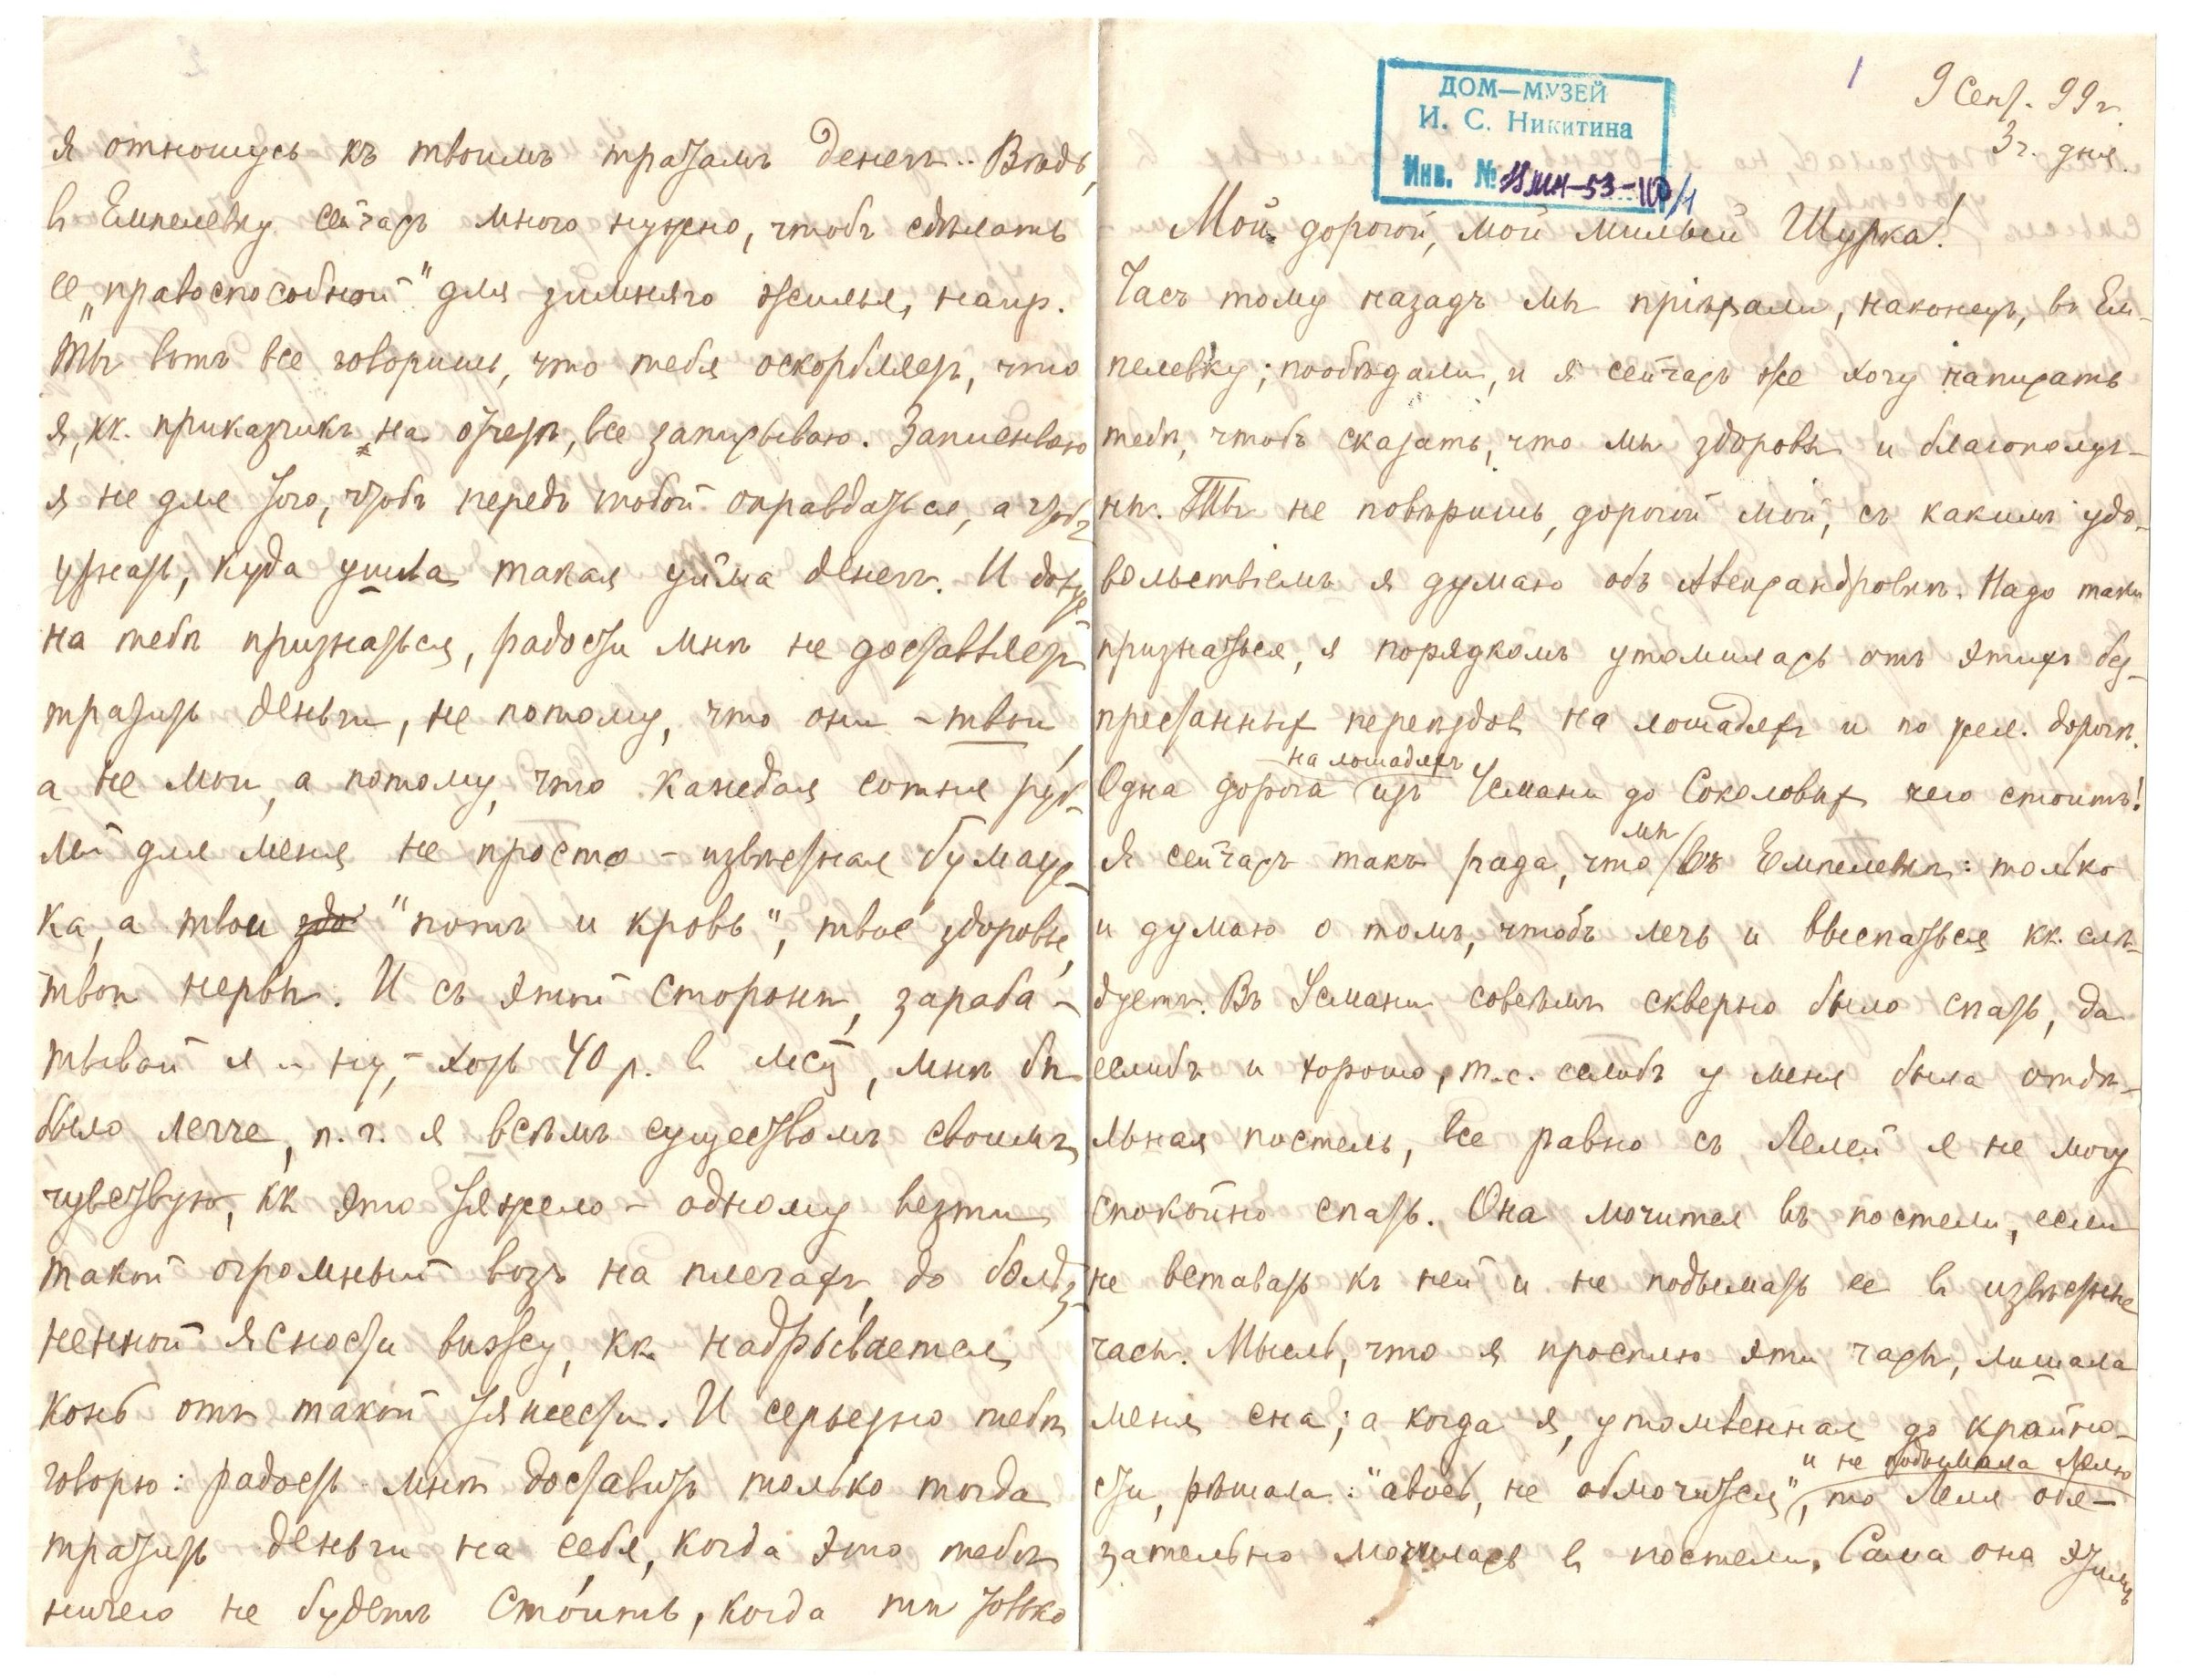 1
9 Сент. 99 г.
3 ч. дня.
ДОМ—МУЗЕЙ
И. С. Никитина
Инв. №
Мой дорогой, мой милый Шурка!
Часъ тому назадъ мы пріѣхали, наконецъ, въ Ем-
пелевку; пообѣдали, и я сейчасъ же хочу написать
тебѣ, чтобъ сказать, что мы здоровы и благополуч-
ны. Ты не повѣришь, дорогой мой, съ какимъ удо-
вольствіемъ я думаю объ Александровкѣ. Надо таки
признаться, я порядкомъ утомилась отъ этихъ без-
престанных переѣздов на лошадяхъ и по жел. дорогѣ.
Одна дорога на лошадяхъ изъ Усмани до Соколовых чего стоитъ!
Я сейчасъ такъ рада, что мы въ Емпелевкѣ: только
и думаю о томъ, чтобъ лечь и выспаться кк. слѣ-
дуетъ. Въ Усмани совсѣмъ скверно было спать, да
еслибъ и хорошо, т.е. еслибъ у меня была отдѣ-
льная постель, все равно съ Лелей я не могу
спокойно спать. Она мочится въ постели, если
не вставать къ ней и не подымать ее в извѣстные
часы. Мысль, что я просплю эти часы, лишала
меня сна; а когда я, утомленная до крайно-
сти, рѣшала: "авось, не обмочится", и не подымала Лелю, то Леля обя-
зательно мочилась в постели. Сама она этимъ
я отношусь къ твоимъ тратамъ денег.. Вѣдь,
в Емпелевку сейчасъ много нужно, чтобъ сдѣлать
ее „правоспособной" для зимняго жилья, напр.
Ты вотъ все говоришь, что тебя оскорбляетъ, что
я, кк. приказчикъ на отчетѣ, все записываю. Записываю
я не для того, чтобъ передъ тобой оправдаться, а чтобъ
узнать, куда ушла такая уйма денегъ. И
на тебѣ признаться, радости мнѣ не доставляетъ
тратить деньги, не потому, что они – твои,
а не мои, а потому, что каждая сотня руб-
лей для меня не просто – извѣстная бумаж-
ка, а твои здо "потъ и кровь", твое здоровье,
твои нервы. И съ этой стороны, зараба-
тывай я – ну, – хоть 40 р. в мсц, мнѣ бы
было легче, п. ч. я всѣмъ существомъ своимъ
чувствую, кк это тяжело – одному везти
такой огромный возъ на плечахъ, до болѣз-
ненной ясности вижу, кк. надрывается
конь отъ такой тяжести. И серьезно тебѣ
говорю: радость мнѣ доставитъ только тогда
тратить деньги на себя, когда это тебѣ
ничего не будетъ сто́ить, когда ты только